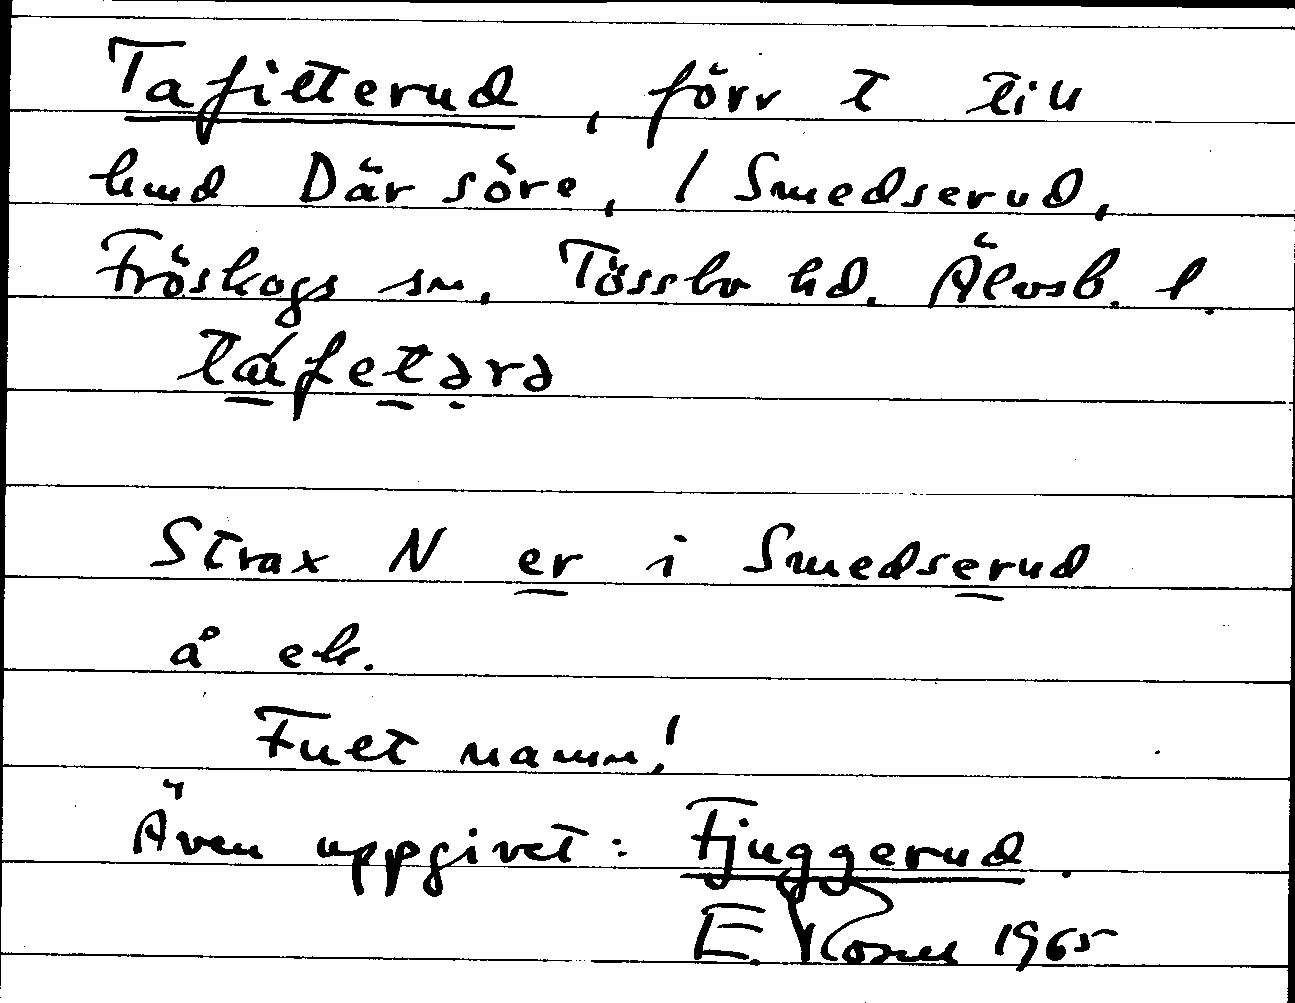 Tafitterud, förr t till
hmd Där söre, / Smedserud,
Fröskogs sn. Tössbo hd. Älvsb. l.
táfetərə
Strax N er i Smedserud
å ek.
Fult namn!
Även uppgivet: Fjuggerud.
E. 1965